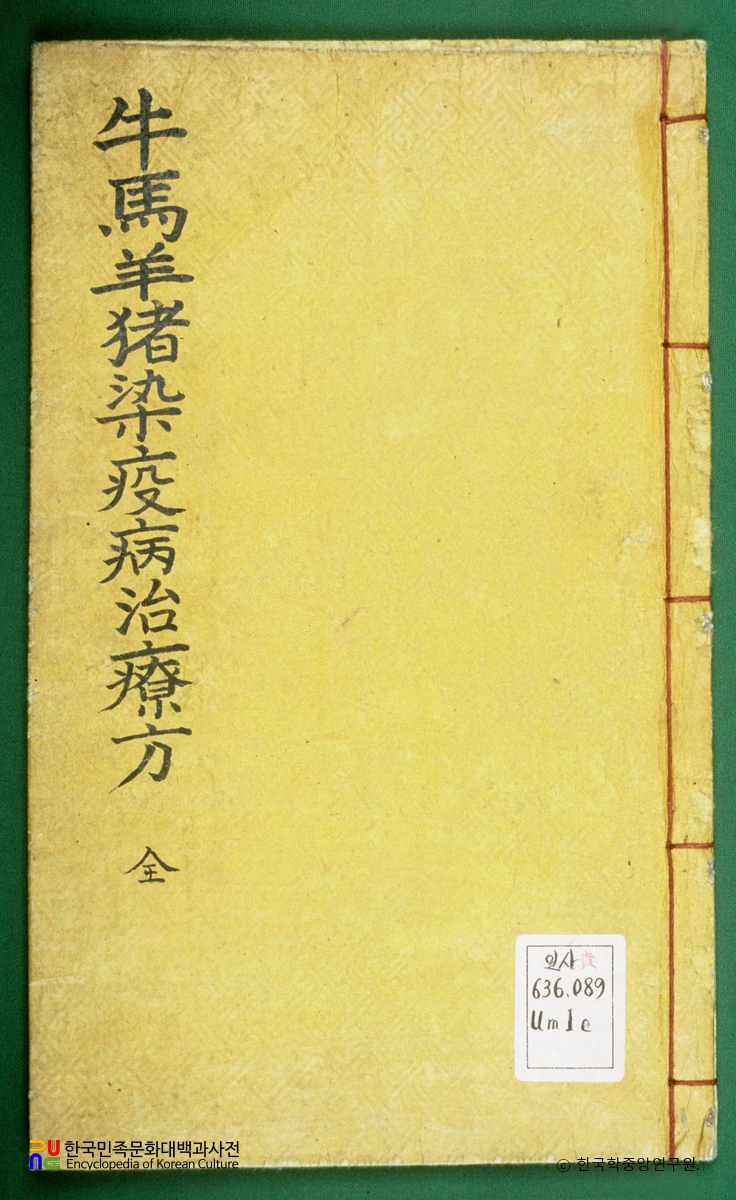 牛馬羊猪染疫病治療方
全
인사 貴
636.089
Um1e
한국민족문화대백과사전
Encyclopedia of Korean Culture
© 한국학중앙연구원